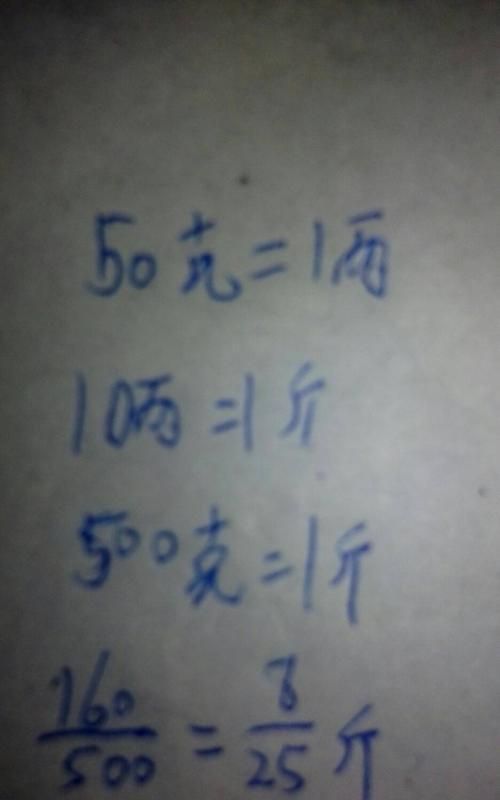 50克=1两
10两=1斤
500克=1斤
160/500 = 8/25 斤